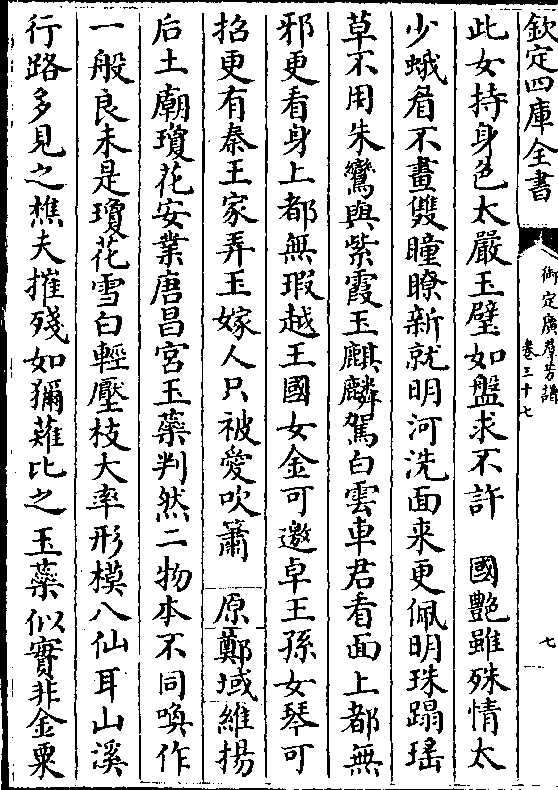 欽定四庫全書
御定廣羣芳譜
卷三十七
七
此女持身色太嚴玉璧如盤求不許　國艷雖殊情太
少蛾眉不畫雙瞳瞭新就明河洗面来更佩明珠蹋瑤
草不用朱鸞與紫霞玉麒麟駕白雲車君看面上都無
邪更看身上都無瑕越王國女金可邀卓王孫女琴可
招更有秦王家弄玉嫁人只被愛吹簫　原鄭域維揚
后土廟瓊花安業唐昌宮玉蘂判然二物本不同喚作
一般良未是瓊花雪白輕壓枝大率形模八仙耳山溪
行路多見之樵夫摧殘如獼薙比之玉蘂似實非金粟